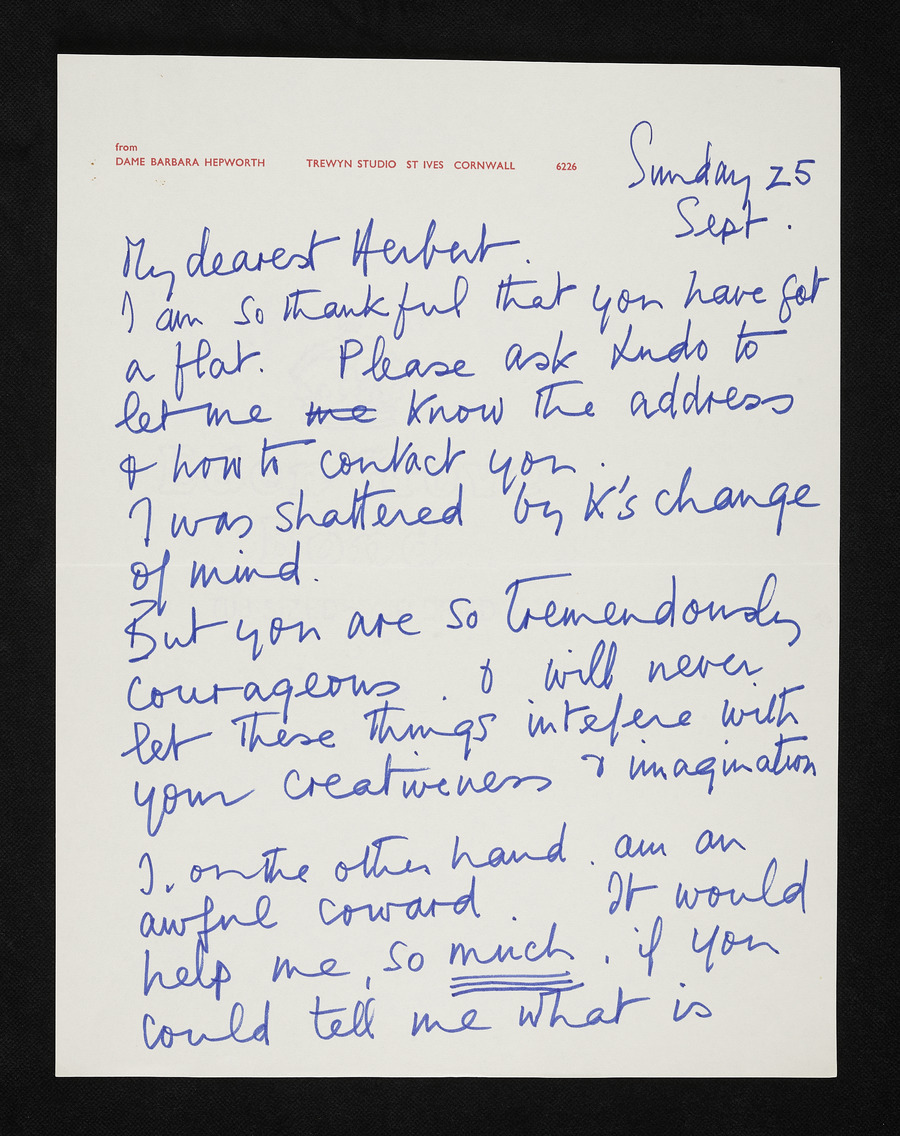 from
DAME BARBARA HEPWORTH TREWYN STUDIO ST IVES CORNWALL 6226
Sunday 25
Sept.
My dearest Herbert.
I am so thankful that you have got
a flat. Please ask Ludo to
let me me know the address
& how to contact you.
I was shattered by K's change
of mind.
But you are so tremendously
courageous. & will never
let these things intefere with
your creativeness & imagination
I, on the other hand. am an
awful coward. It would
help me, so much, if you
could tell me what is